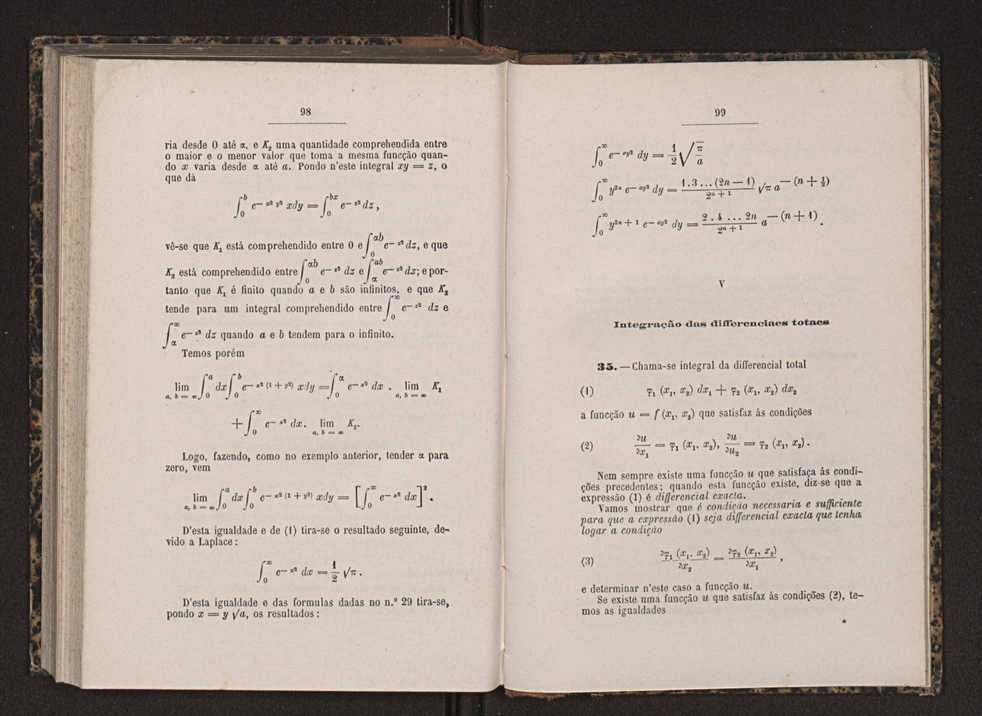 98
ria desde 0 até α, e K₂ uma quantidade comprehendida entre
o maior e o menor valor que toma a mesma funcção quan-
do x varia desde α até a. Pondo n'este integral xy = z, o
que dá
∫₀^b e^{− x² y²} xdy = ∫₀^{bx} e^{− z²} dz ,
vê-se que K₁ está comprehendido entre 0 e ∫₀^{αb} e^{− z²} dz, e que
K₂ está comprehendido entre ∫₀^{ab} e^{− z²} dz e ∫_α^{ab} e^{− z²} dz; e por-
tanto que K₁ é finito quando a e b são infinitos, e que K₂
tende para um integral comprehendido entre ∫₀^∞ e^{− z²} dz e
∫_α^∞ e^{− z²} dz quando a e b tendem para o infinito.
Temos porém
lim_{a, b = ∞} ∫₀^a dx ∫₀^b e^{− x² (1 + y²)} xdy = ∫₀^α e^{− x²} dx . lim_{a, b = ∞} K₁
+ ∫₀^∞ e^{− x²} dx. lim_{a, b = ∞} K₂.
Logo, fazendo, como no exemplo anterior, tender α para
zero, vem
lim_{a, b = ∞} ∫₀^a dx ∫₀^b e^{− x² (1 + y²)} xdy = [∫₀^∞ e^{− x²} dx]².
D'esta igualdade e de (1) tira-se o resultado seguinte, de-
vido a Laplace:
∫₀^∞ e^{− x²} dx = 1/2 √π .
D'esta igualdade e das formulas dadas no n.º 29 tira-se,
pondo x = y √a, os resultados:
99
∫₀^∞ e^{− ay²} dy = 1/2 √(π/a)
∫₀^∞ y^{2n} e^{− ay²} dy = 1.3...(2n — 1)/2^{n + 1} √π a^{— (n + ½)}
∫₀^∞ y^{2n + 1} e^{− ay²} dy = 2 . 4 ... 2n/2^{n + 1} a^{— (n + 1)} .
V
Integração das differenciaes totaes
35. — Chama-se integral da differencial total
(1) φ₁ (x₁, x₂) dx₁ + φ₂ (x₁, x₂) dx₂
a funcção u = f (x₁, x₂) que satisfaz ás condições
(2) ∂u/∂x₁ = φ₁ (x₁, x₂), ∂u/∂u₂ = φ₂ (x₁, x₂).
Nem sempre existe uma funcção u que satisfaça ás condi-
ções precedentes; quando esta funcção existe, diz-se que a
expressão (1) é differencial exacta.
Vamos mostrar que é condição necessaria e sufficiente
para que a expressão (1) seja differencial exacta que tenha
logar a condição
(3) ∂φ₁ (x₁, x₂)/∂x₂ = ∂φ₂ (x₁, x₂)/∂x₁ ,
e determinar n'este caso a funcção u.
Se existe uma funcção u que satisfaz ás condições (2), te-
mos as igualdades
*